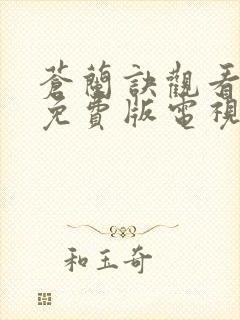 蒼蘭訣觀看
免費版電視
和玉奇